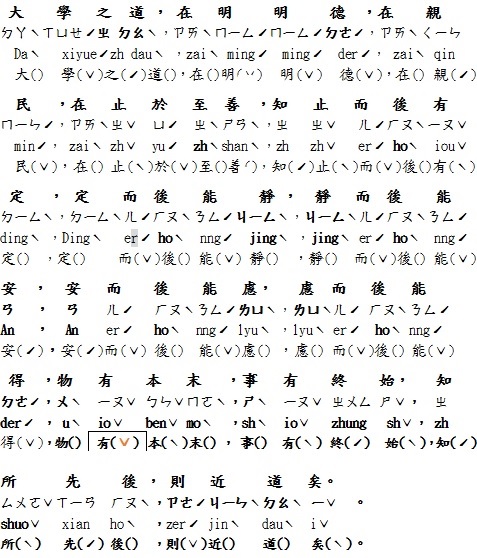 大 學之道，在 明 明 德，在 親
ㄉㄚˋㄒㄩㄝˊㄓ ㄉㄠˋ，ㄗㄞˋㄇㄧㄥˊㄇㄧㄥˊㄉㄜˊ，ㄗㄞˋㄑㄧㄣ
Daˋ xiyueˊzh dauˋ, zaiˋmingˊ mingˊ derˊ, zaiˋ qin
大() 學(ˇ)之(ˊ)道()，在()明(ˇ) 明(ˇ) 德(ˇ)，在() 親(ˊ)
民，在止於 至善，知止而後有
ㄇㄧㄣˊ，ㄗㄞˋㄓˇ ㄩˊ ㄓˋㄕㄢˋ，ㄓ ㄓˇ ㄦˊㄏㄡˋㄧㄡˇ
minˊ, zaiˋ zhˇ yuˊ zhˋshanˋ, zh zhˇ erˊ hoˋ iouˇ
民(ˇ)，在() 止(ˋ)於(ˇ)至()善()，知(ˊ)止(ˋ)而(ˇ)後()有(ˋ)
定，定 而後能 靜，靜而後能
ㄉㄧㄥˋ，ㄉㄧㄥˋㄦˊㄏㄡˋㄋㄥˊㄐㄧㄥˋ，ㄐㄧㄥˋㄦˊㄏㄡˋㄋㄥˊ
dingˋ, Dingˋ erˊ hoˋ nngˊ jingˋ, jingˋ erˊ hoˋ nngˊ
定()，定() 而(ˇ)後() 能(ˇ)靜()，靜() 而(ˇ)後()能(ˇ)
安，安而後能慮，慮而後能
ㄢ，ㄢ ㄦˊ ㄏㄡˋㄋㄥˊㄌㄩˋ，ㄌㄩˋㄦˊ ㄏㄡˋㄋㄥˊ
An， An erˊ hoˋ nngˊ lyuˋ, lyuˋ erˊ hoˋ nngˊ
安(ˊ)，安(ˊ)而(ˇ)後() 能(ˇ)慮()，慮() 而(ˇ)後()能(ˇ)
得，物有本末，事有終始，知
ㄉㄜˊ，ㄨˋ ㄧㄡˇ ㄅㄣˇㄇㄛˋ，ㄕˋ ㄧㄡˇ ㄓㄨㄥ ㄕˇ，ㄓ
derˊ, uˋ ioˇ benˇ moˋ, shˋ ioˇ zhung shˇ, zh
得(ˇ)，物() 有(ˇ) 本(ˋ)末()，事() 有(ˋ) 終(ˊ) 始(ˋ)，知(ˊ)
所 先後，則近 道矣。
ㄙㄨㄛˇㄒㄧㄢ ㄏㄡˋ，ㄗㄜˊㄐㄧㄣˋㄉㄠˋ ㄧˇ 。
shuoˇ xian hoˋ, zerˊ jinˋ dauˋ iˇ
所(ˋ) 先(ˊ)後()，則(ˇ)近() 道() 矣(ˋ)。